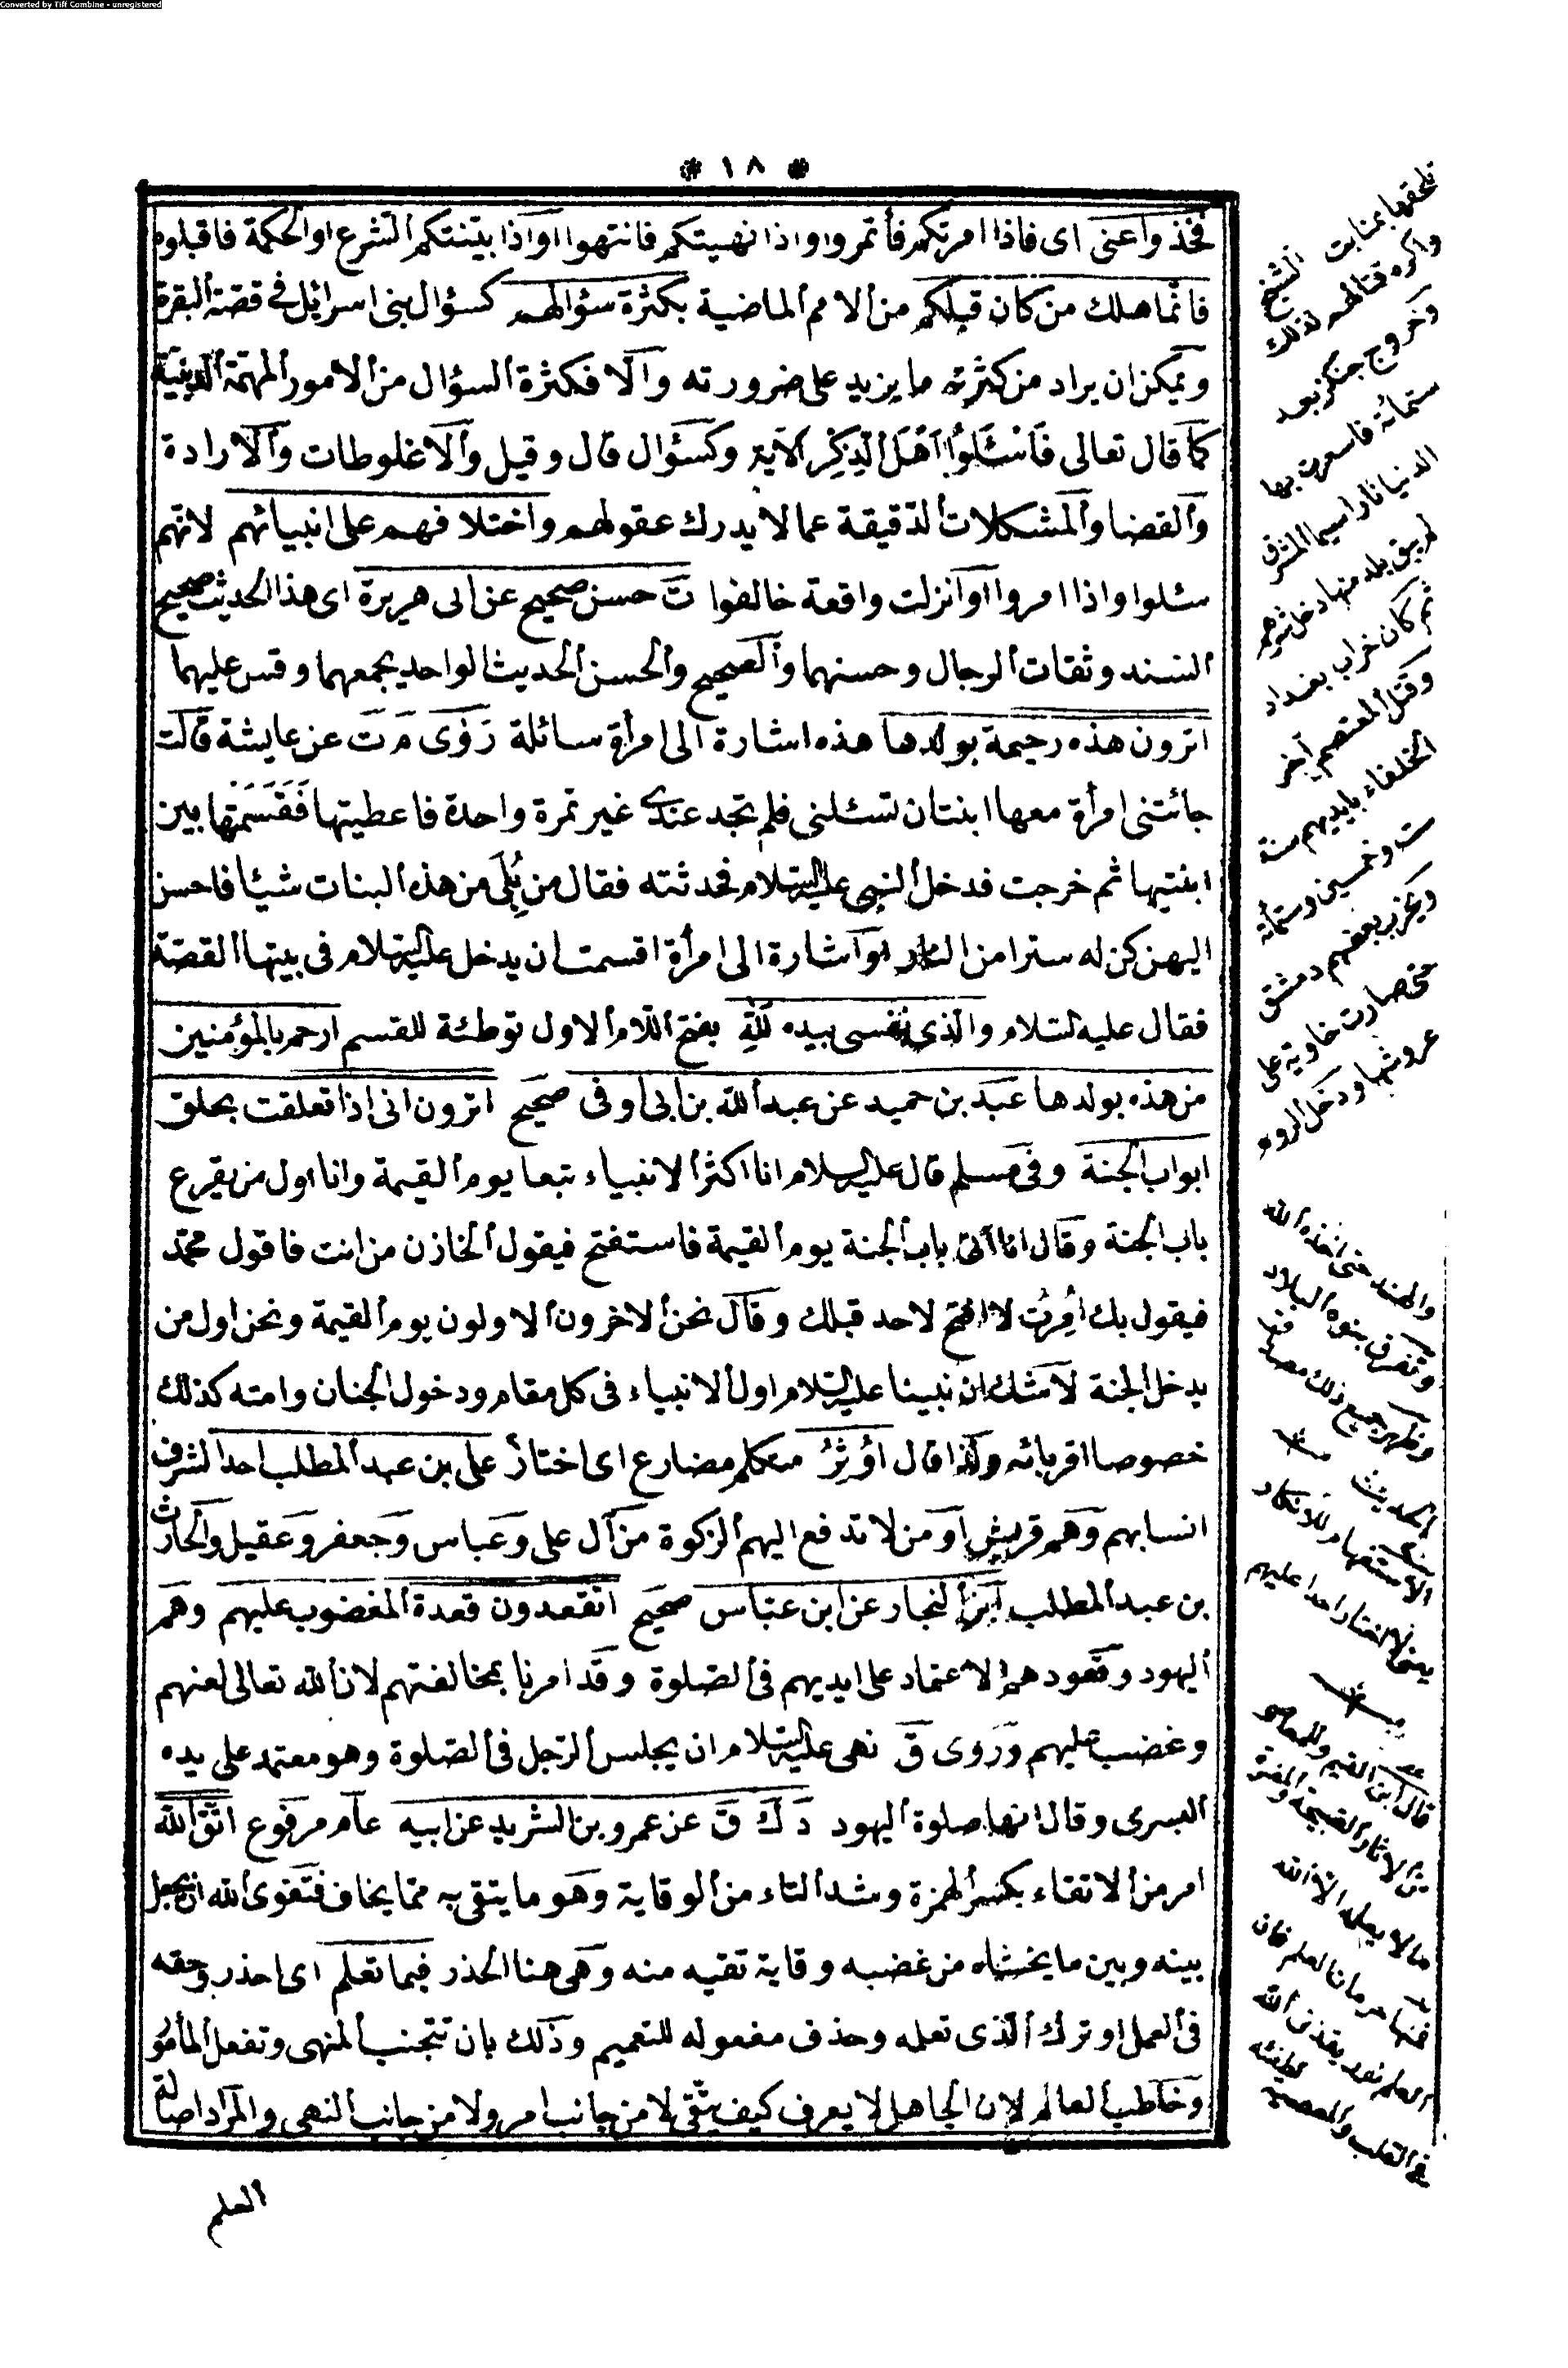 Converted by Tiff Combine - unregistered
* ١٨ *
فخذوا عنى اى فاذا امرتكم فأتمروا واذا نهيتكم فانتهوا اواذا بينتكم الشرع او الحكمة فاقبلوه
فانما هلك من كان قبلكم من الامم الماضية بكثرة سؤالهم كسؤال بنى اسرائل فى قصة البقرة
ويمكن ان يراد من كثرته ما يزيد على ضرورته والا فكثرة السؤال من الامور المهمة الدينية
كما قال تعالى فَاسْئَلُوا اَهْلَ الذِّكْرِ الآية وكسؤال قال وقيل والاغلوطات والارادة
والقضا والمشكلات الدقيقة عما لا يدرك عقولهم واختلافهم على انبيائهم لانهم
سئلوا واذا امروا اوانزلت واقعة خالفوا ت حسن صحيح عن ابى هريرة اى هذا الحديث صحيح
السند وثقات الرجال وحسنهما والصحيح والحسن الحديث الواحد يجمعهما وقس عليهما
اترون هذه رحيمة بولدها هذه اشارة الى امرأة سائلة رَوَى م ت عن عايشة قالت
جائتنى امرأة معها ابنتان تسئلنى فلم تجد عندى غير تمرة واحدة فاعطيتها فَقَسَمَتْها بين
ابنتيها ثم خرجت فدخل النبى عليه السلام فحدثته فقال من بُلِىَ من هذه البنات شيئا فاحسن
اليهن كن له سترا من النار اواشارة الى امرأة اقسمت ان يدخل عليه السلام فى بيتها القصة
فقال عليه السلام والذى نفسى بيده للهِ بفتح اللام الاول توطئة للقسم ارحم بالمؤمنين
من هذه بولدها عبد بن حميد عن عبد الله بن ابى اوفى صحيح اترون انى اذا تعلقت بحلق
ابواب الجنة وفى مسلم قال عليه السلام انا اكثر الانبياء تبعا يوم القيمة وانا اول من يقرع
باب الجنة وقال انا آتى باب الجنة يوم القيمة فاستفتح فيقول الخازن من انت فاقول محمد
فيقول بك اُمِرْتُ لا افتح لاحد قبلك وقال نحن الاخرون الاولون يوم القيمة ونحن اول من
يدخل الجنة لاشك ان نبينا عليه السلام اول الانبياء فى كل مقام ودخول الجنان وامته كذلك
خصوصا اقربائه ولذا قال اُوثِرُ متكلم مضارع اى اختار على بن عبد المطلب احد الشرف
انسابهم وهم قريش او من لا تدفع اليهم الزكوة من آل على وعباس وجعفر وعقيل والحارث
بن عبد المطلب ابن النجار عن ابن عباس صحيح اتقعدون قعدة المغضوب عليهم وهم
اليهود وقعودهم الاعتماد على ايديهم فى الصلوة وقد امرنا بمخالفتهم لان الله تعالى لعنهم
وغضب عليهم وروى ق نهى عليه السلام ان يجلس الرجل فى الصلوة وهو معتمد على يده
اليسرى وقال انها صلوة اليهود د ك ق عن عمرو بن الشريد عن ابيه عام مرفوع اتق الله
امر من الاتقاء بكسر الهمزة وشد التاء من الوقاية وهو ما يتقى به مما يخاف فتقوى الله ان يجعل
بينه وبين ما يخشاه من غضبه وقاية تقيه منه وهى هنا الحذر فيما تعلم اى احذر وحقه
فى العمل او ترك الذى تعلمه وحذف مفعوله للتعميم وذلك بان تتجنب المنهى وتفعل المأمور
وخاطب العالم لان الجاهل لا يعرف كيف يتقى لا من جانب امر ولا من جانب النهى والمراد اصالة
العلم
واكره قتالهم لذلك
وخروج جنكز بعد
ستمائة فاسعرت بها
الدنيا نارا سيما المشرق
لم يبق بلد منها دخل شرهم
ثم كان خراب بغداد
وقتل المعتصم آخر
الخلفاء بايديهم سنة
ست وخمسين وستمائة
دمشق
صارت خاوية على
عروشها ودخل الروم
والهند حتى اخذه الله
وتفرق بنوه البلاد
وظهر جميع ذلك
الحديث
الاستفهام للانكار
يعنى لا اختار احدا عليهم
قال ابن القيم وللمعاصى
من الآثار القبيحة
ما لا يعلمه الا الله
فمنها حرمان العلم فان
العلم نور يقذف الله
فى القلب والمعصية تطفئه